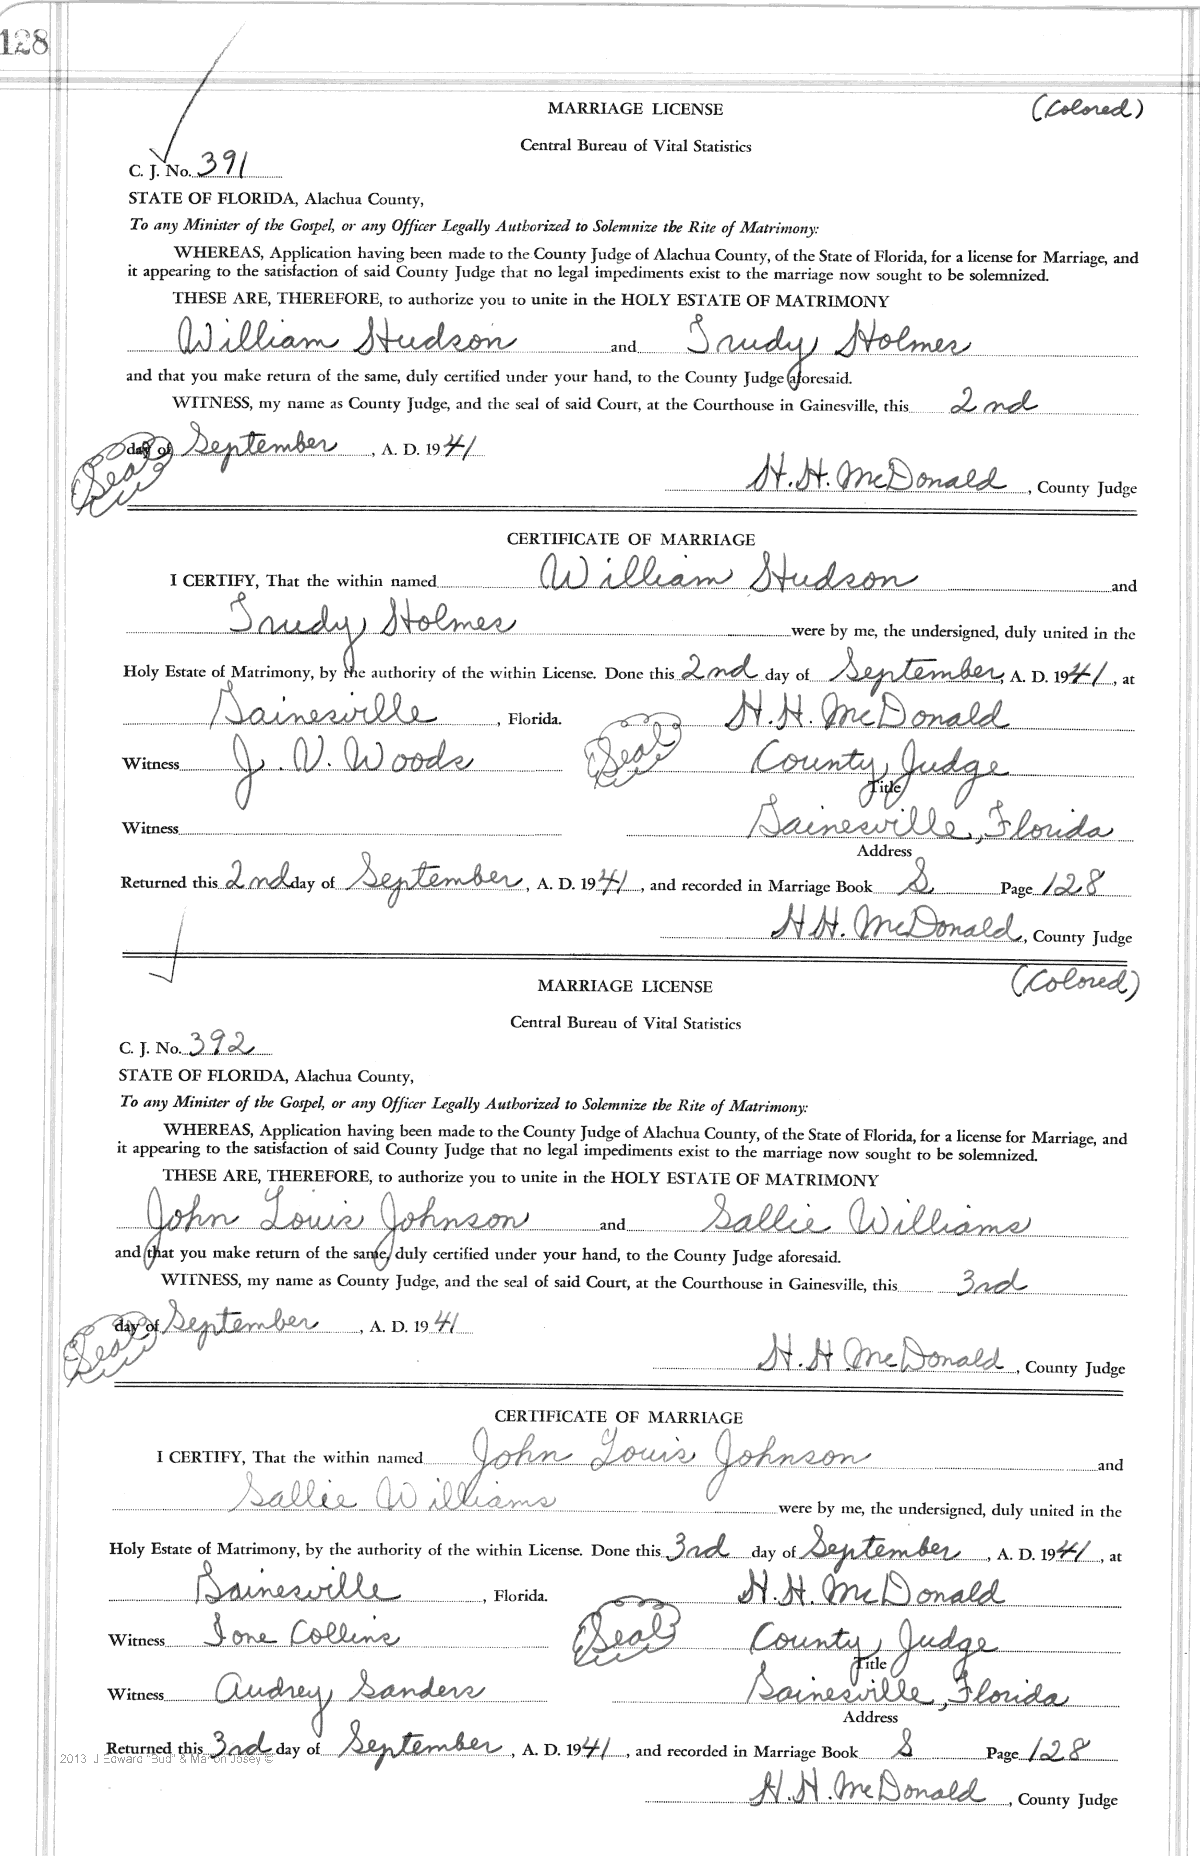 128
MARRIAGE LICENSE (Colored)
Central Bureau of Vital Statistics
C. J. No. 391
STATE OF FLORIDA, Alachua County,
To any Minister of the Gospel, or any Officer Legally Authorized to Solemnize the Rite of Matrimony:
WHEREAS, Application having been made to the County Judge of Alachua County, of the State of Florida, for a license for Marriage, and
it appearing to the satisfaction of said County Judge that no legal impediments exist to the marriage now sought to be solemnized.
THESE ARE, THEREFORE, to authorize you to unite in the HOLY ESTATE OF MATRIMONY
William Hudson and Trudy Holmes
and that you make return of the same, duly certified under your hand, to the County Judge aforesaid.
WITNESS, my name as County Judge, and the seal of said Court, at the Courthouse in Gainesville, this 2nd
day of September, A. D. 1941
Seal
H. H. McDonald, County Judge
CERTIFICATE OF MARRIAGE
I CERTIFY, That the within named William Hudson and
Trudy Holmes were by me, the undersigned, duly united in the
Holy Estate of Matrimony, by the authority of the within License. Done this 2nd day of September, A. D. 1941, at
Gainesville, Florida. H. H. McDonald
Witness J. V. Woods Seal County Judge
Title
Witness Gainesville, Florida
Address
Returned this 2nd day of September, A. D. 1941, and recorded in Marriage Book S Page 128
H. H. McDonald, County Judge
MARRIAGE LICENSE (Colored)
Central Bureau of Vital Statistics
C. J. No. 392
STATE OF FLORIDA, Alachua County,
To any Minister of the Gospel, or any Officer Legally Authorized to Solemnize the Rite of Matrimony:
WHEREAS, Application having been made to the County Judge of Alachua County, of the State of Florida, for a license for Marriage, and
it appearing to the satisfaction of said County Judge that no legal impediments exist to the marriage now sought to be solemnized.
THESE ARE, THEREFORE, to authorize you to unite in the HOLY ESTATE OF MATRIMONY
John Louis Johnson and Sallie Williams
and that you make return of the same, duly certified under your hand, to the County Judge aforesaid.
WITNESS, my name as County Judge, and the seal of said Court, at the Courthouse in Gainesville, this 3rd
day of September, A. D. 1941
Seal
H. H. McDonald, County Judge
CERTIFICATE OF MARRIAGE
I CERTIFY, That the within named John Louis Johnson and
Sallie Williams were by me, the undersigned, duly united in the
Holy Estate of Matrimony, by the authority of the within License. Done this 3rd day of September, A. D. 1941, at
Gainesville, Florida. H. H. McDonald
Witness Ione Collins Seal County Judge
Title
Witness Audrey Sanders Gainesville, Florida
Address
Returned this 3rd day of September, A. D. 1941, and recorded in Marriage Book S Page 128
2013 J Edward "Bud" & Marion Josey ©
H. H. McDonald, County Judge